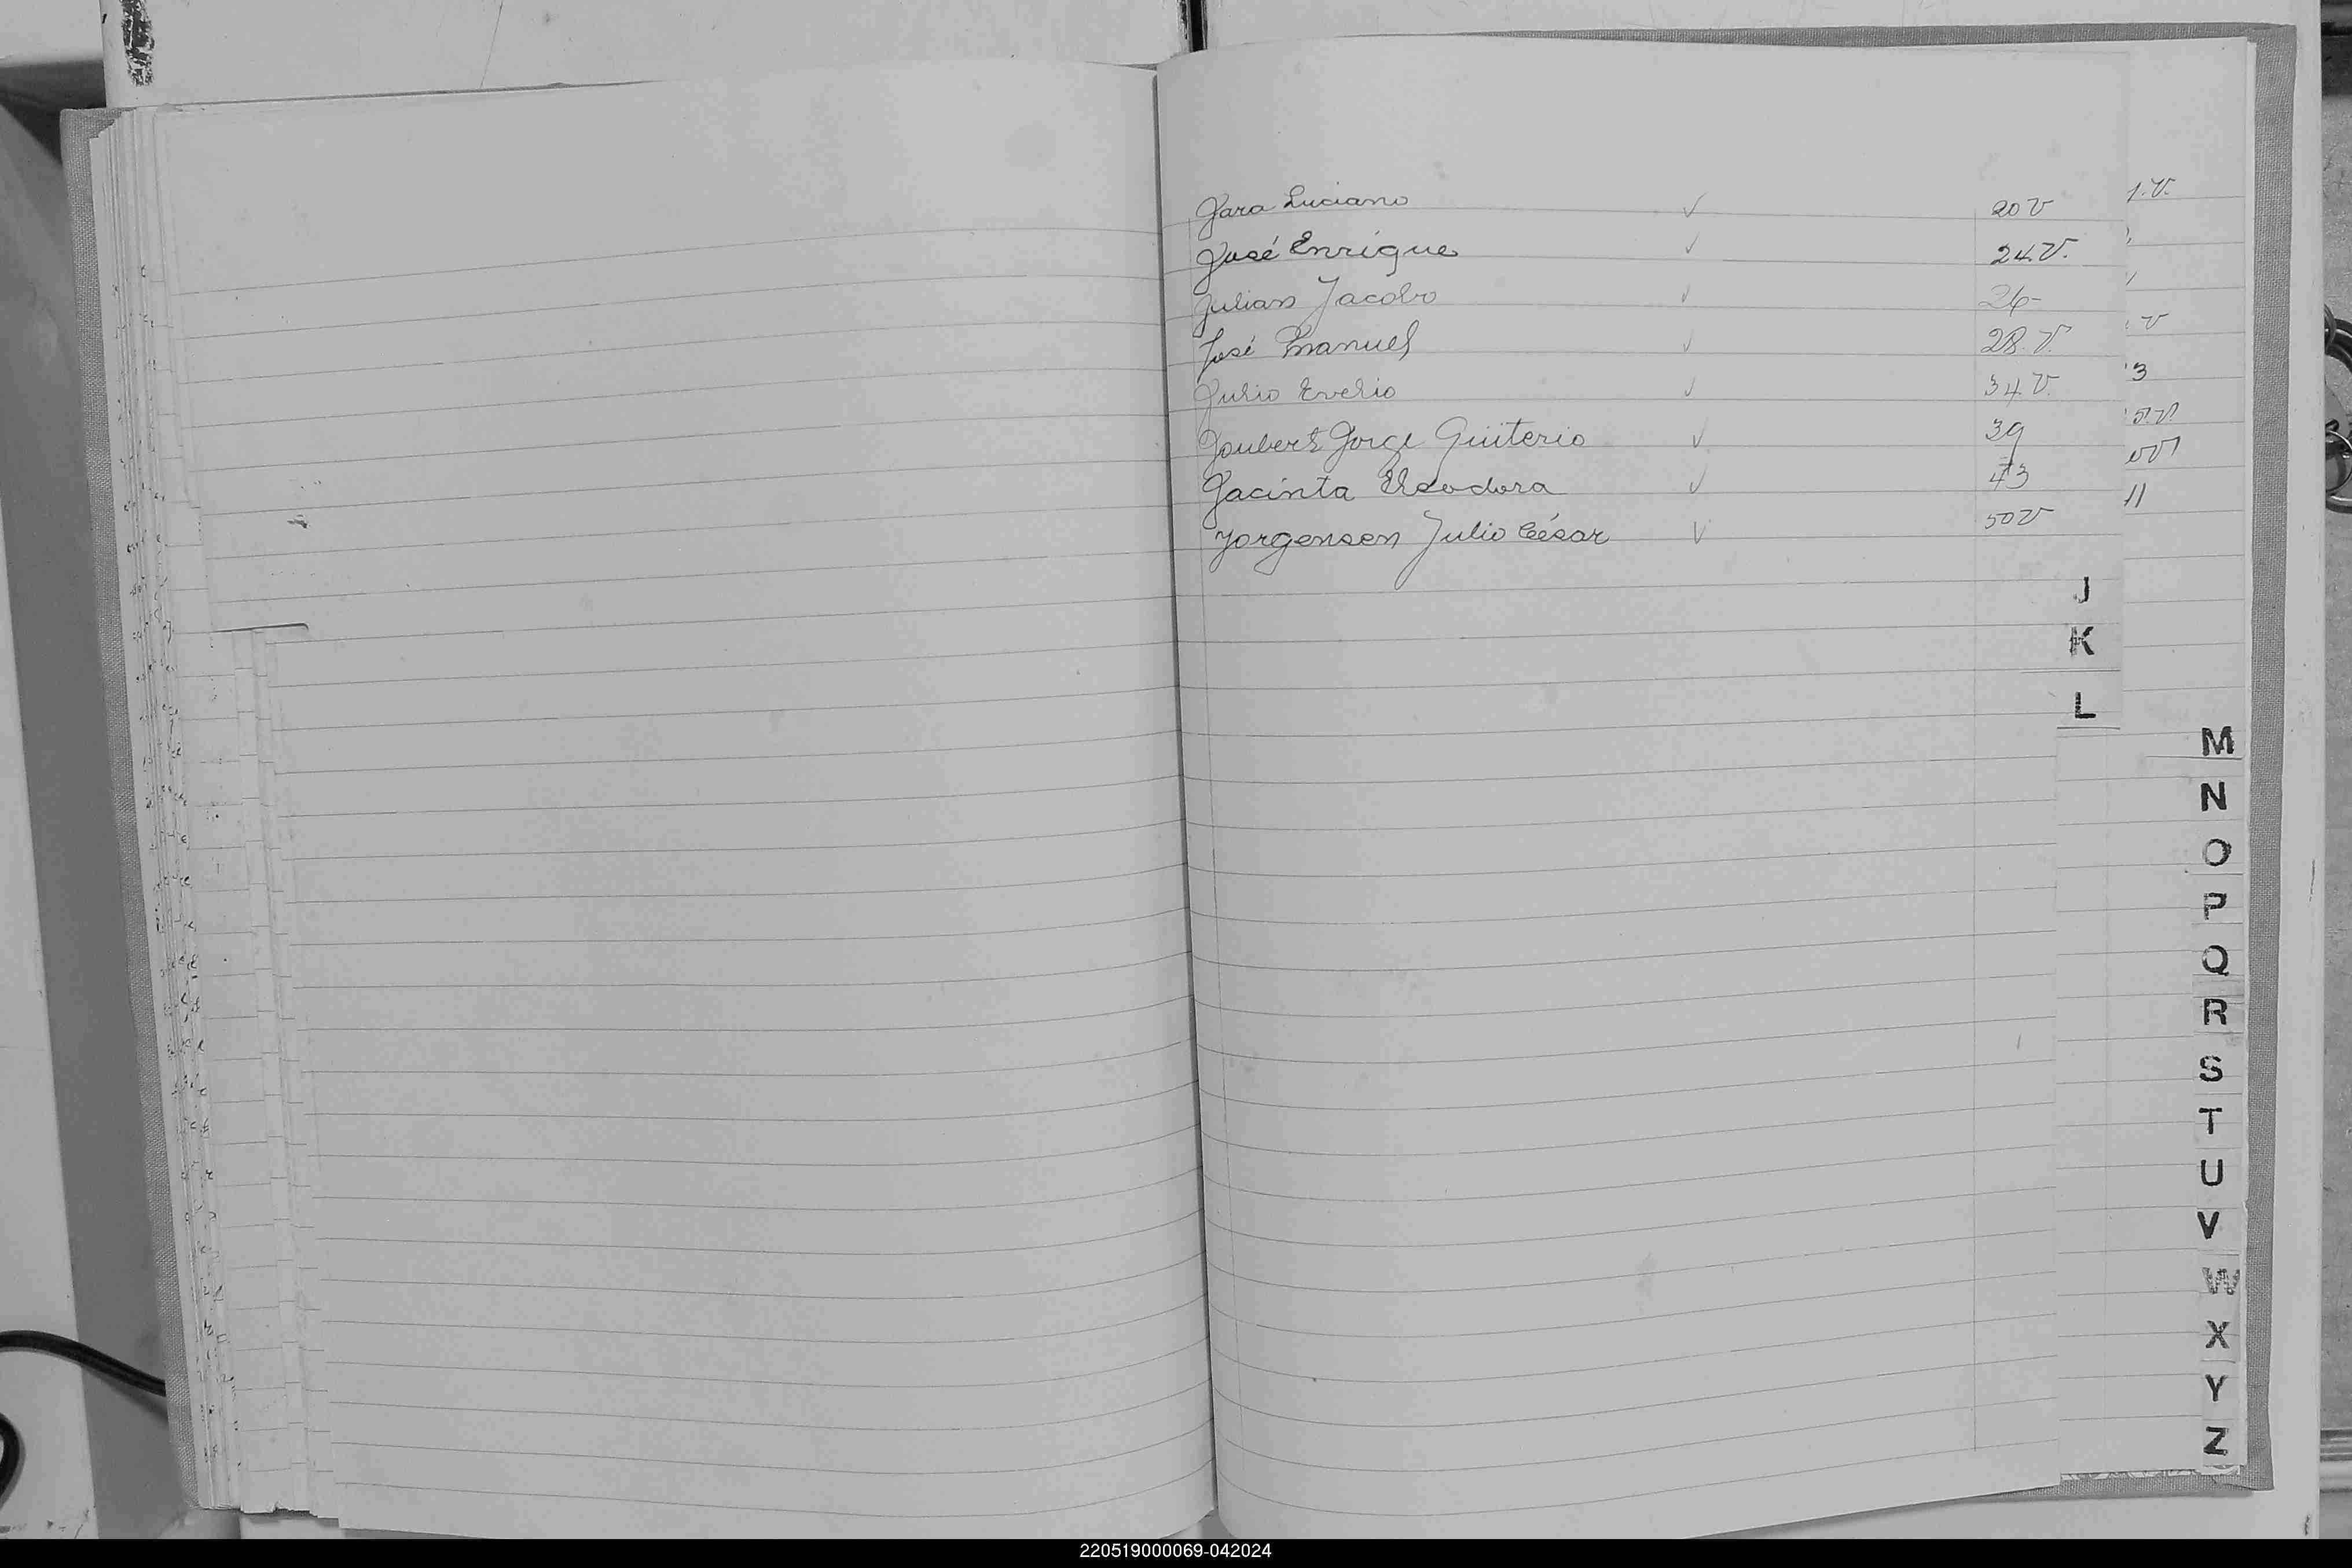 Jara Luciano ✓ 20 v
José Enrique ✓ 24 v.
Julian Jacobo ✓ 26-
José Manuel ✓ 28. v.
Julio Evelio ✓ 34 v.
Joubert Jorge Quiterio ✓ 39
Jacinta Theodora ✓ 43
Jorgensen Julio César ✓ 50 v
1. v.
v
3
11
J
K
L
M
N
O
P
Q
R
S
T
U
V
W
X
Y
Z
220519000069-042024